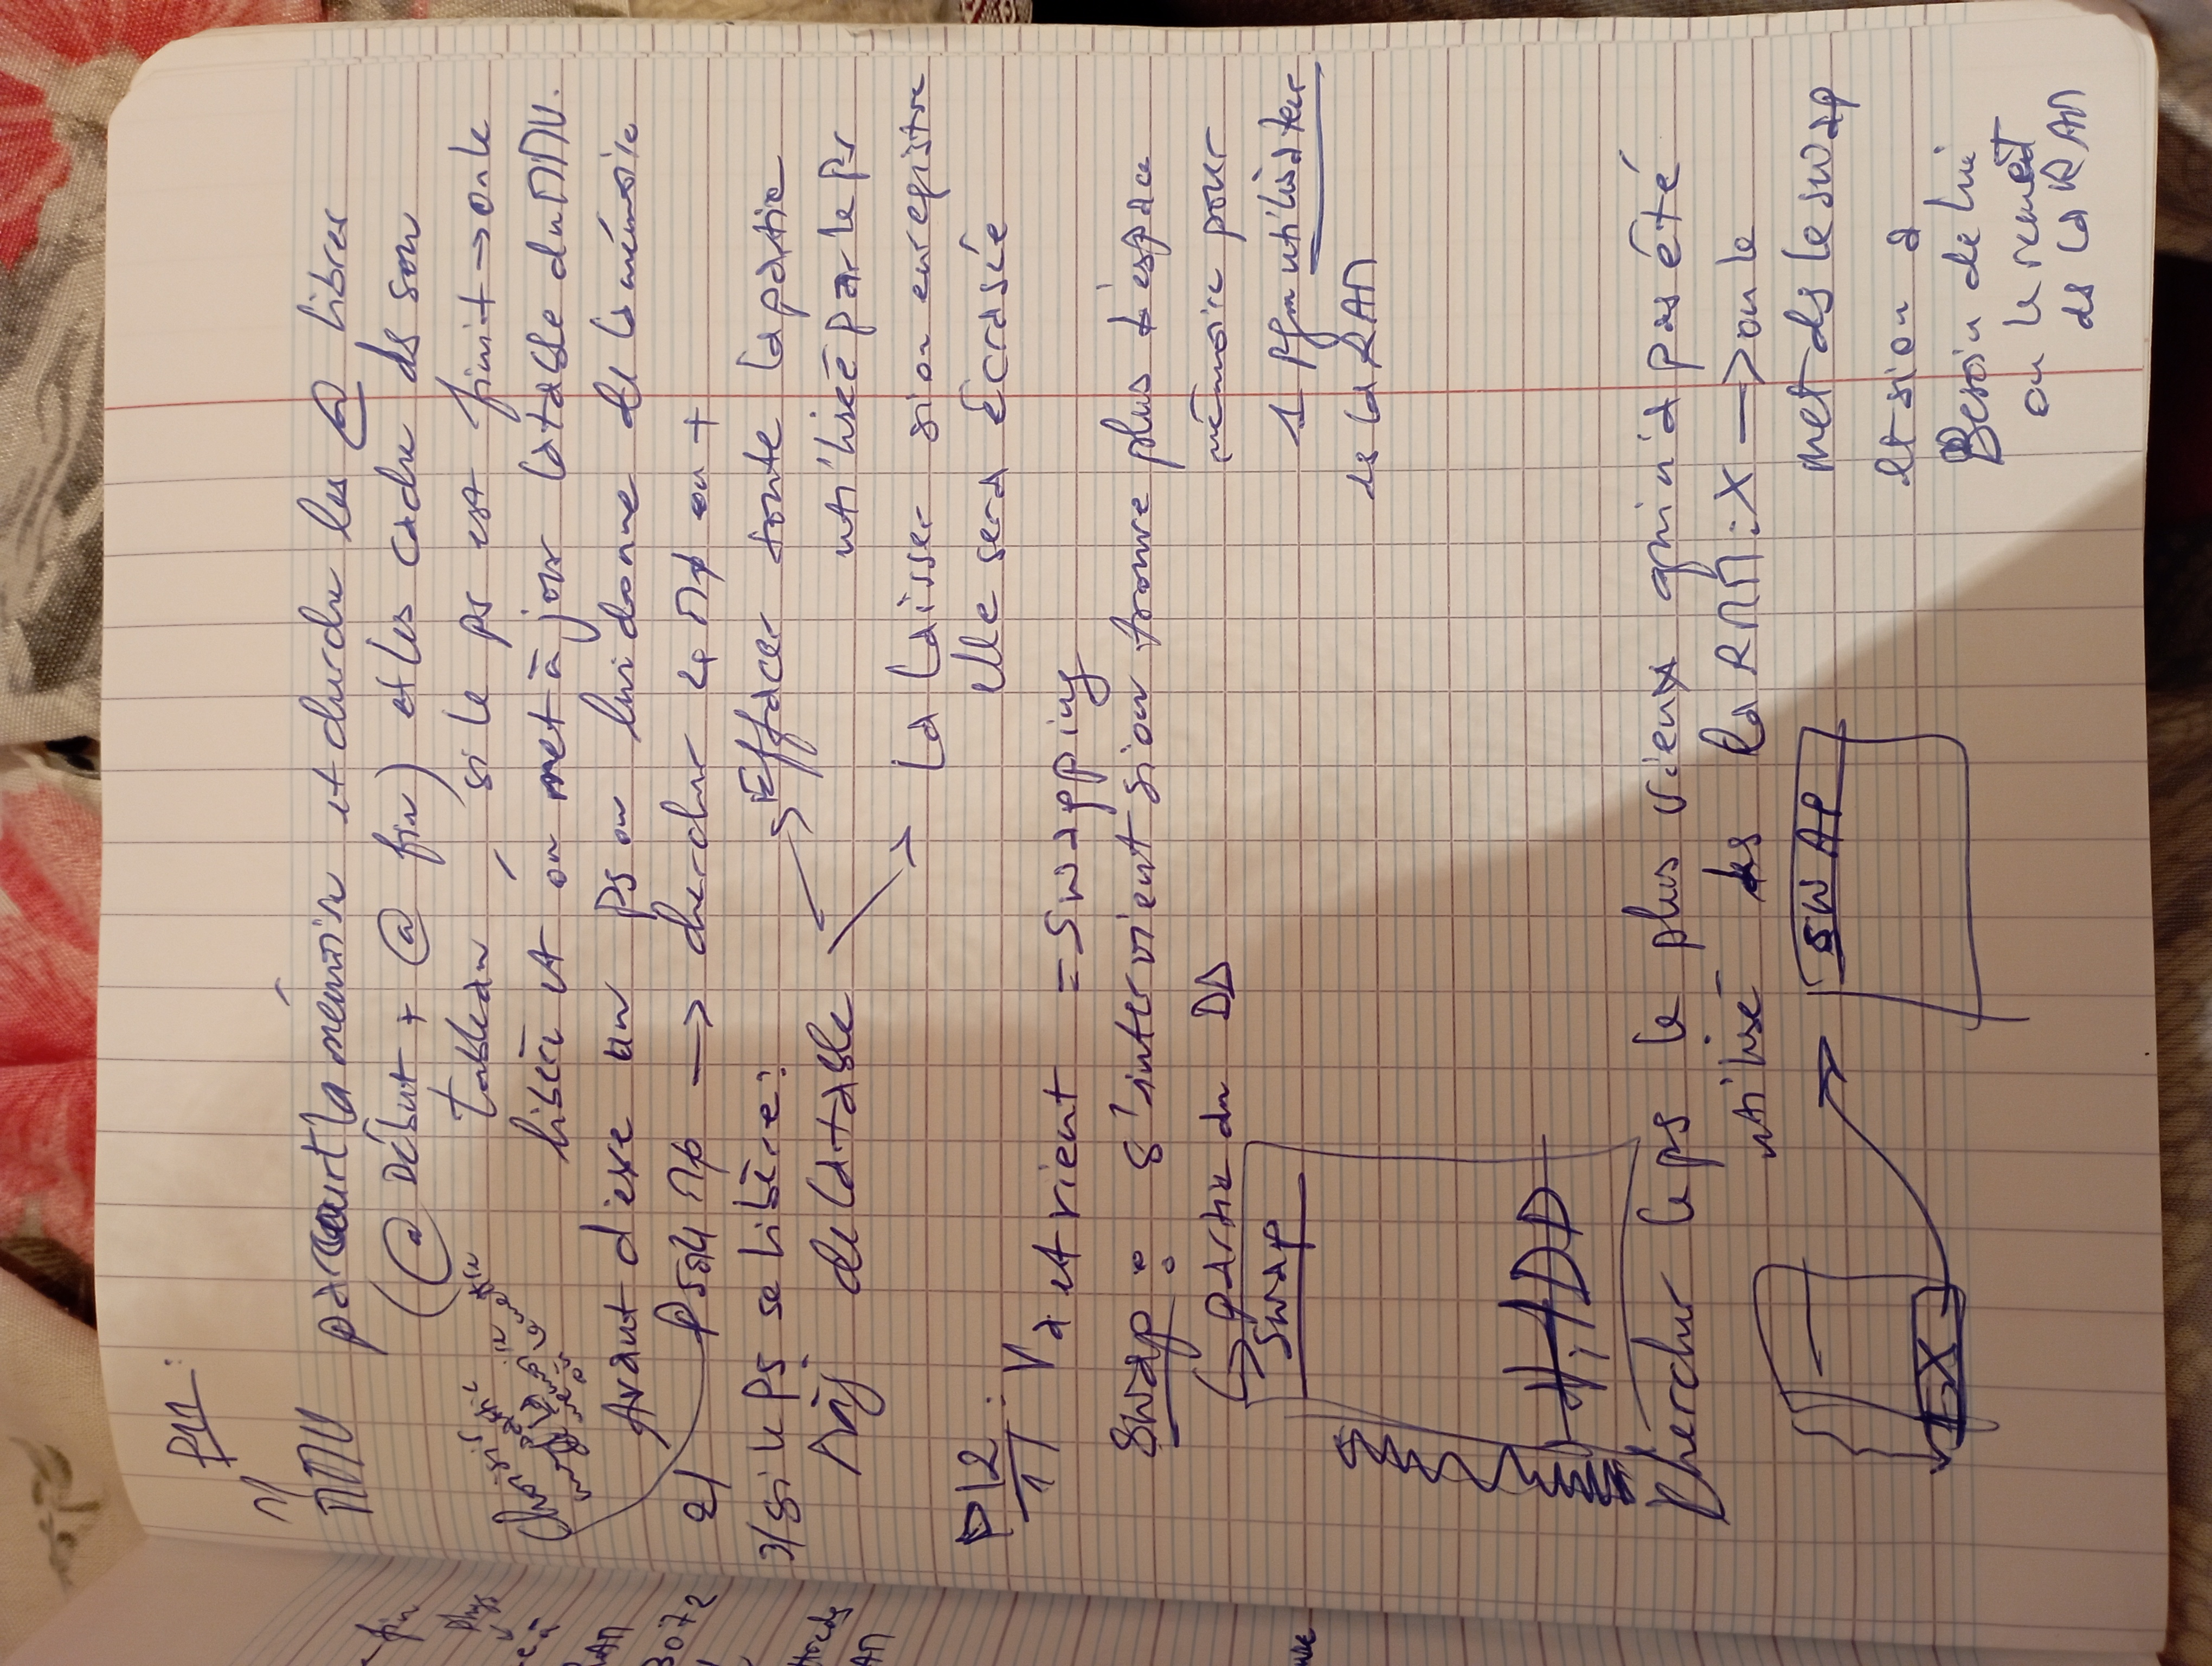 1) P11:
MMU parcourt la mémoire et cherche les @ libres
(@ Début + @ fin) et les cadre ds son
Tableau si le ps est finit → on le
libère et on met à jour la table du MMU.
Choisir
partie
Avant d'exe un ps on lui donne de la mémoire
2) Ps 24 Mb → chercher 24 Mb ou +
3/ Si le ps se libère :
Màj de la table → Effacer toute la partie
utilisée par le Ps
→ la laisser si on enregistre
elle sera écrasée
P12
1) : Va et vient = Swapping
Swap : s'intervient si on trouve plus d'espace
mémoire pour
1 pgm utilisateur
ds la RAM
→ partie du DD
SWAP
HDD
Chercher le ps le plus vieux qui n'a pas été
utilisé ds la RAM : X → on le
met ds le swap
et si on a
Besoin de lui
on le remet
ds la RAM
X
SWAP
3072